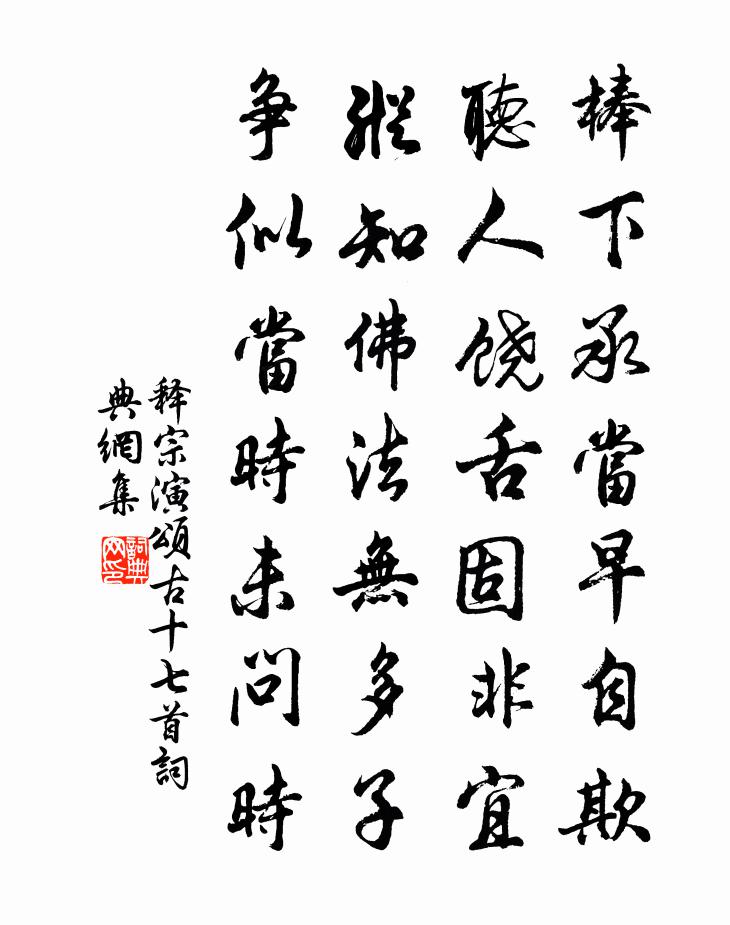 棒下承當早自欺
聽人饒舌固非宜
縱知佛法無多子
爭似當時未問時
释宗演頌古十七首詞
典網集
詞典网印